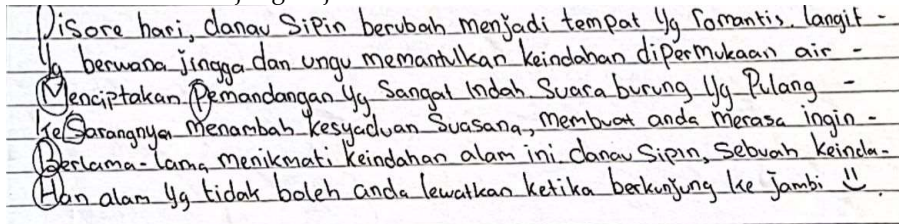 Disore hari, danau Sipin berubah menjadi tempat Yg Romantis. langit -
Yg berwana jingga dan ungu memantulkan keindahan dipermukaan air -
Menciptakan Pemandangan Yg Sangat Indah Suara burung Yg Pulang -
Ke Sarangnya menambah kesyaduan Suasana, membuat anda merasa ingin -
Berlama-lama menikmati keindahan alam ini. danau Sipin, Sebuah keinda-
Han alam Yg tidak boleh anda lewatkan ketika berkunjung ke jambi